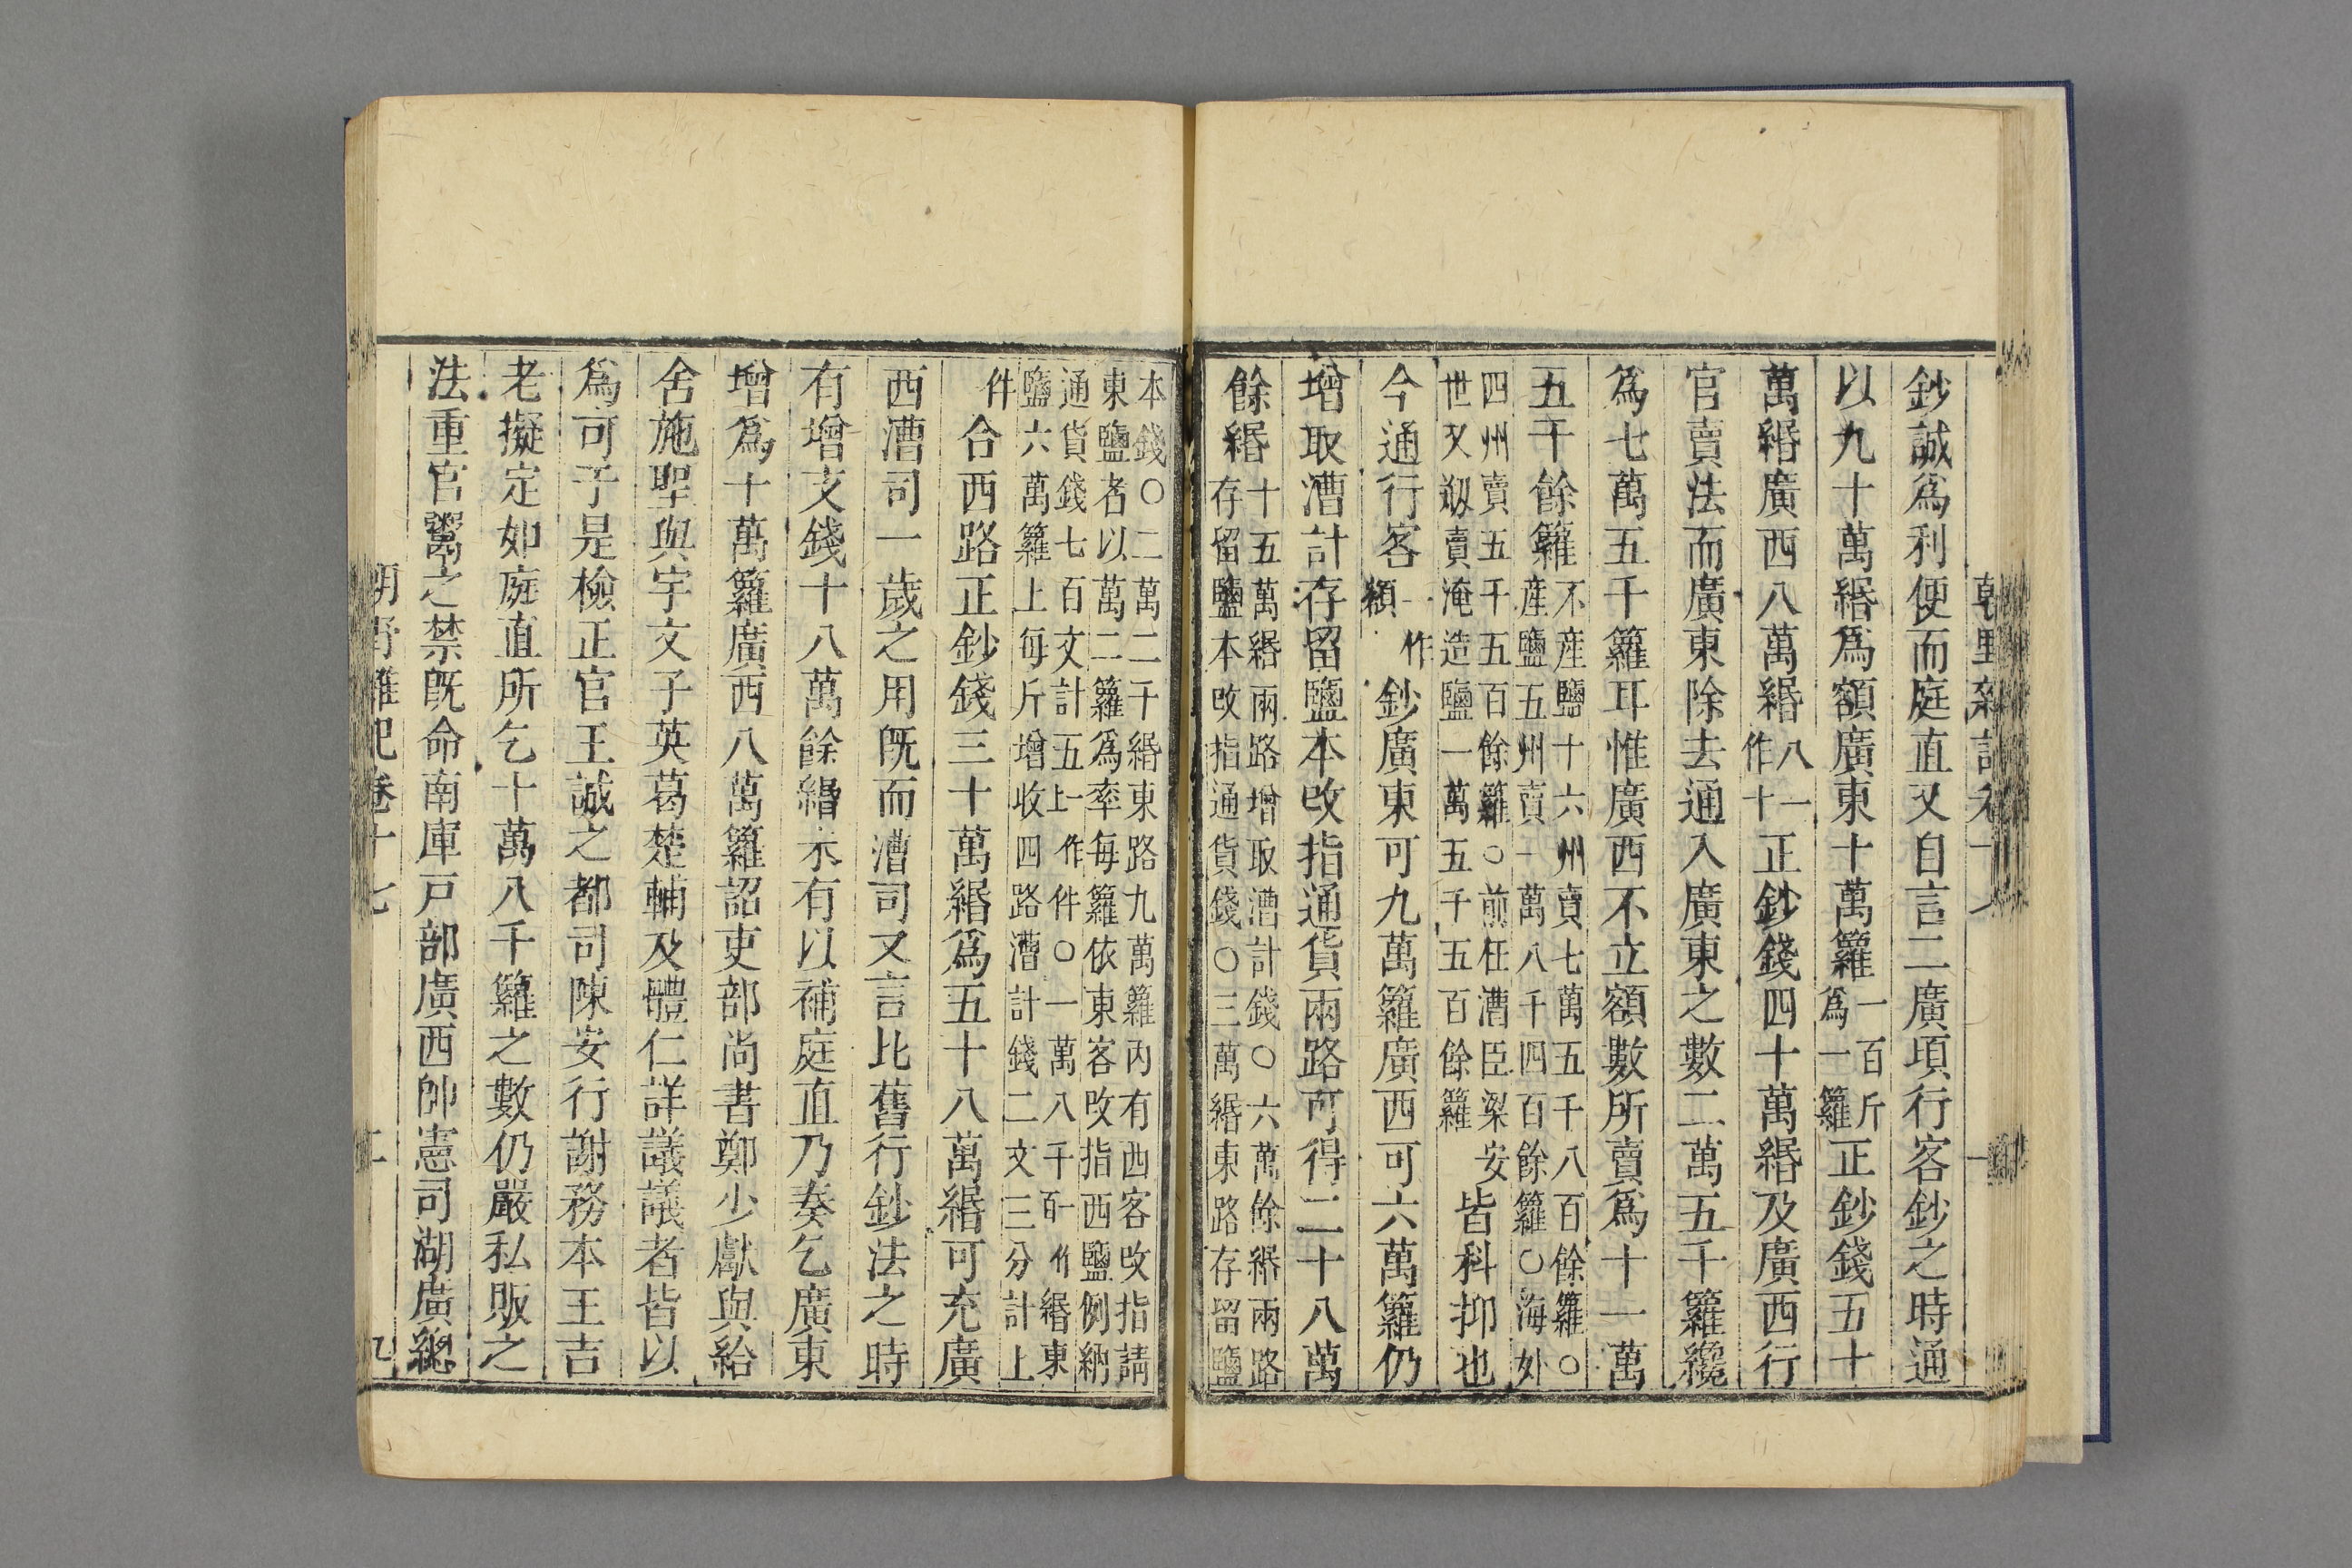 鈔誠爲利便而庭直又自言二廣項行客鈔之時通
以九十萬緡爲額廣東十萬籮一百斤爲一籮正鈔錢五十
萬緡廣西八萬緡八一作十正鈔錢四十萬緡及廣西行
官賣法而廣東除去通入廣東之數二萬五千籮纔
爲七萬五千籮耳惟廣西不立額數所賣爲十一萬
五千餘籮不産鹽十六州賣七萬五千八百餘籮○産鹽五州賣一萬八千四百餘籮○海外
四州賣五千五百餘籮○前任漕臣梁安世又剏賣淹造鹽一萬五千五百餘籮皆科抑也
今通行客一作額鈔廣東可九萬籮廣西可六萬籮仍
增取漕計存留鹽本改指通貨兩路可得二十八萬
餘緡十五萬緡兩路增取漕計錢○六萬餘緡兩路存留鹽本改指通貨錢○三萬緡東路存留鹽
本錢○二萬二千緡東路九萬籮内有西客改指請東鹽者以萬二籮爲率每籮依東客改指西鹽例納
通貨錢七百文計五上一作件○一萬八千百一作緡東鹽六萬籮上每斤增收四路漕計錢二文三分計上
件合西路正鈔錢三十萬緡爲五十八萬緡可充廣
西漕司一歲之用既而漕司又言比舊行鈔法之時
有增支錢十八萬餘緡未有以補庭直乃奏乞廣東
增爲十萬籮廣西八萬籮詔吏部尚書鄭少獻與給
舍施聖與宇文子英葛楚輔及體仁詳議議者皆以
爲可于是檢正官王誠之都司陳安行謝務本王吉
老擬定如庭直所乞十萬八千籮之數仍嚴私販之
法重官鬻之禁既命南庫戸部廣西帥憲司湖廣總
朝野雜記卷十七